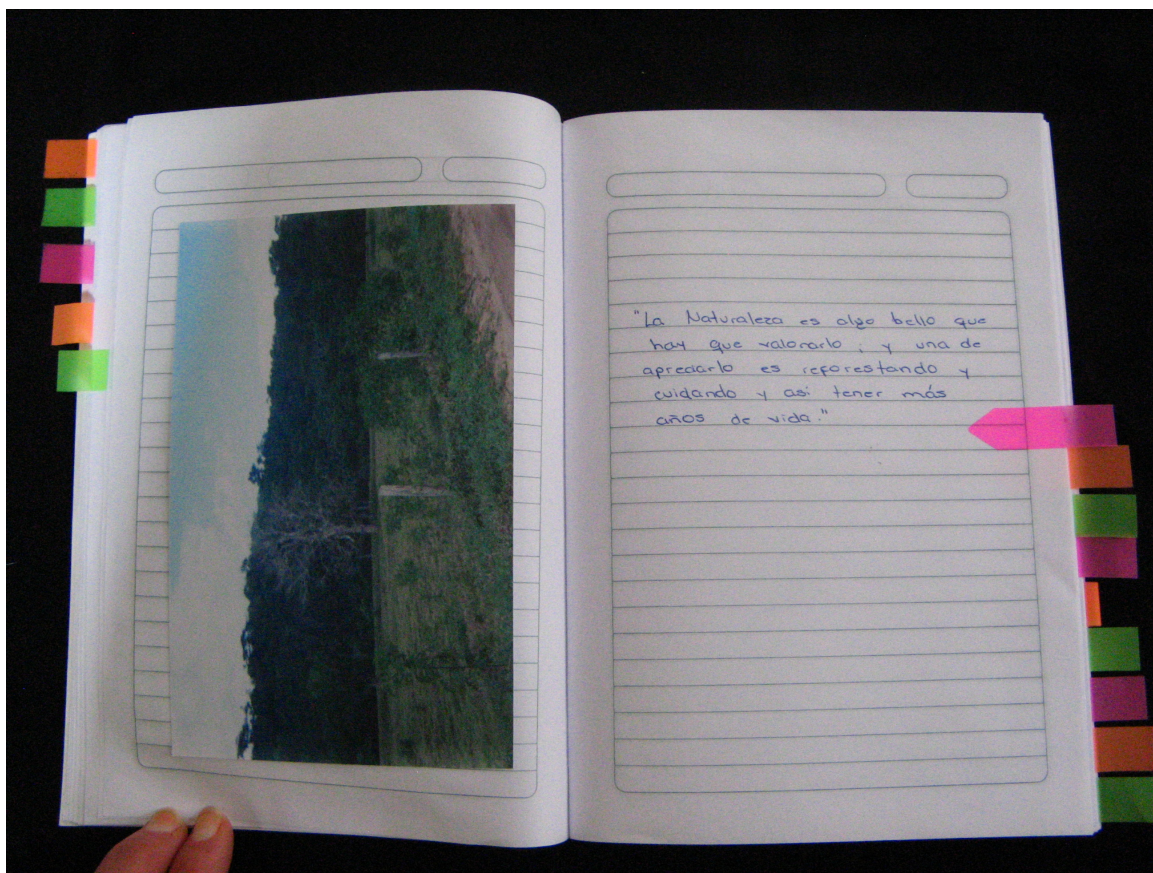 "La Naturaleza es algo bello que
hay que valorarlo ; y una de
apreciarlo es reforestando y
cuidando y así tener más
años de vida."